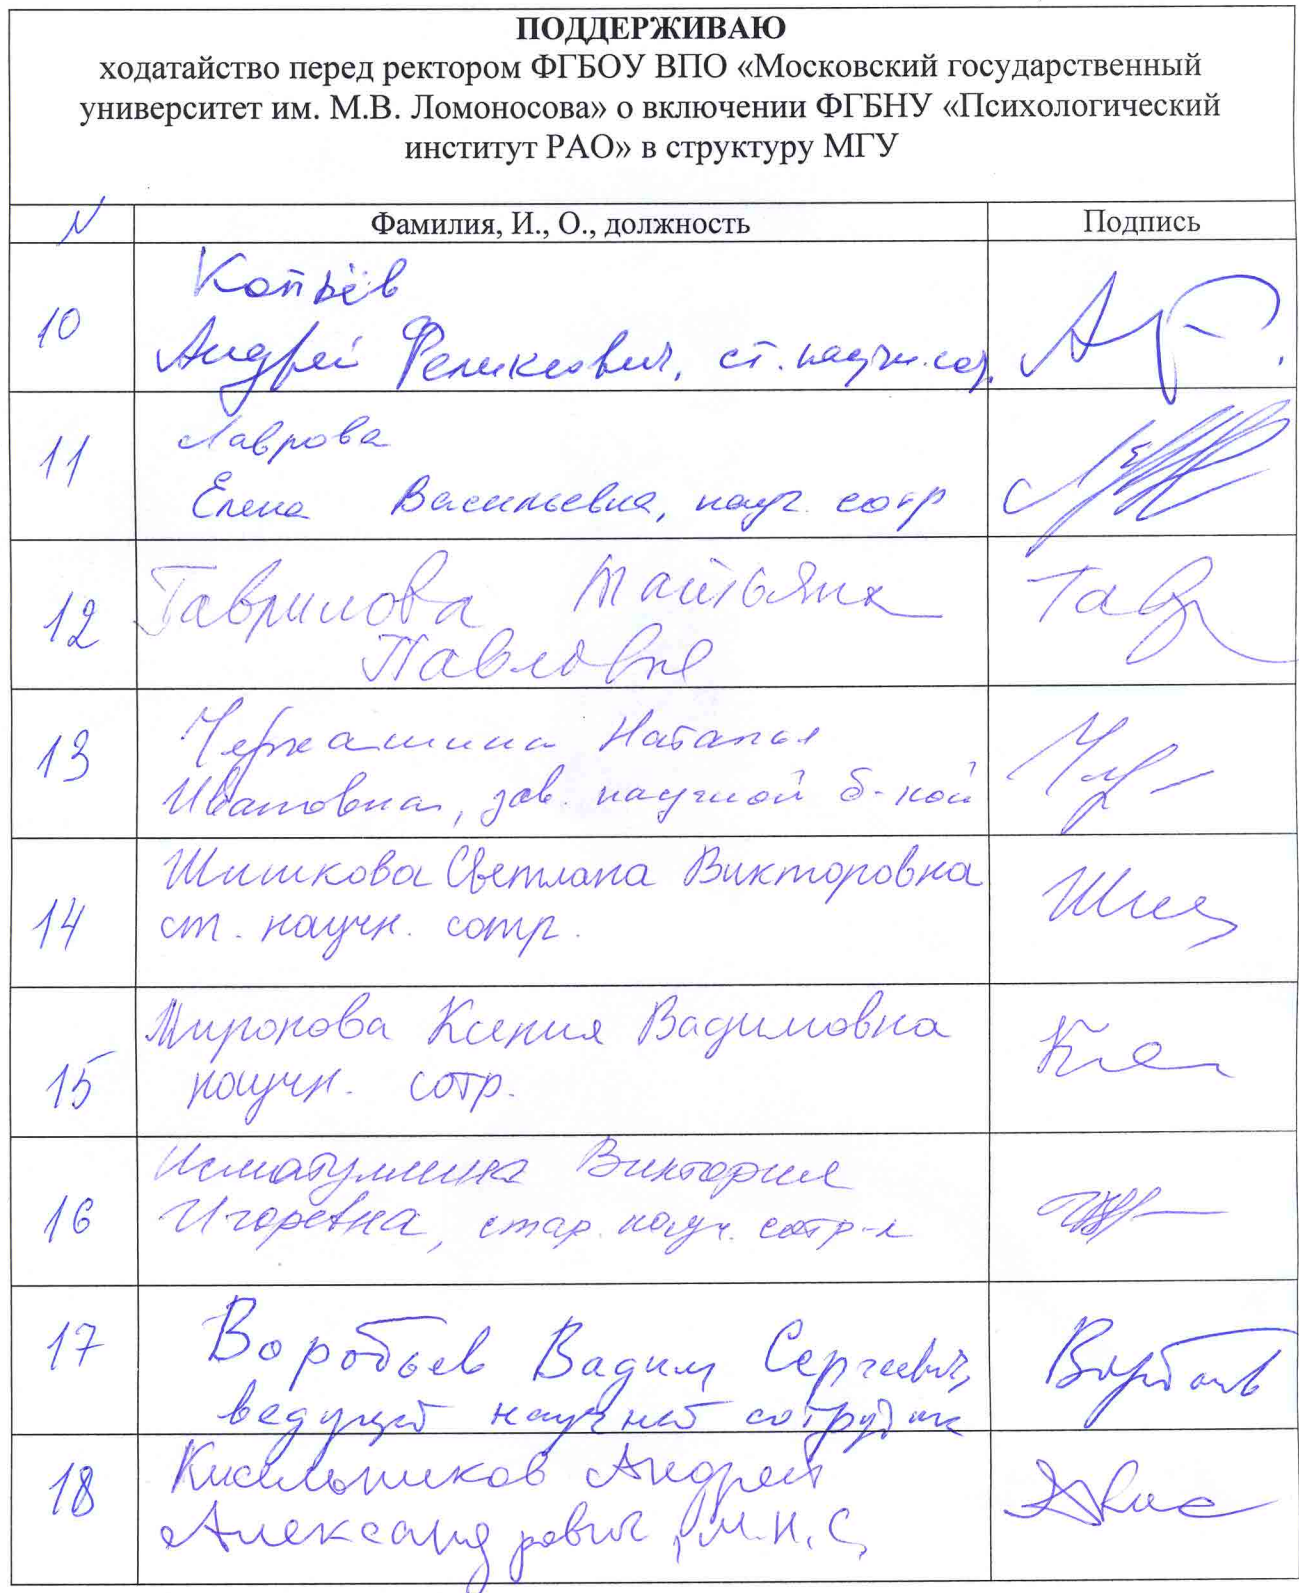 ПОДДЕРЖИВАЮ
ходатайство перед ректором ФГБОУ ВПО «Московский государственный
университет им. М.В. Ломоносова» о включении ФГБНУ «Психологический
институт РАО» в структуру МГУ
N Фамилия, И., О., должность Подпись
Копьёв
10
Андрей Феликсович, ст. научн. сот.
Лаврова
11
Елена Васильевна, науч. сотр
Гаврилова Татьяна Гавр
12
Павловна
Черкашина Наталья
13
Ивановна, зав. научной б-кой
Шишкова Светлана Викторовна
14 ст. научн. сотр.
Миронова Ксения Вадимовна
15 научн. сотр.
Исматуллина Виктория
16 Игоревна, стар. науч. сотр-к
17 Воробьев Вадим Сергеевич,
ведущий научный сотрудник
Кисельников Андрей
18
Александрович, м.н.с.